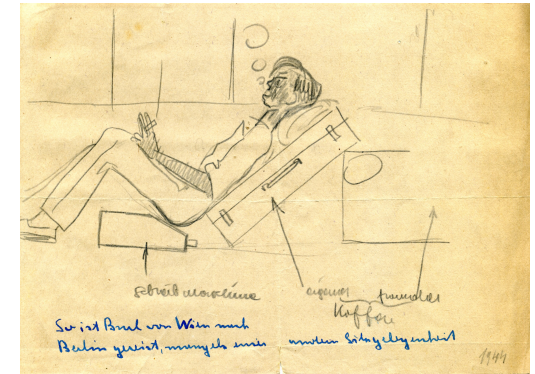 Schreibmaschine
eigener fremder
Koffer
So ist Bruk von Wien nach
Berlin gereist, mangels einer andern Sitzgelegenheit
1944